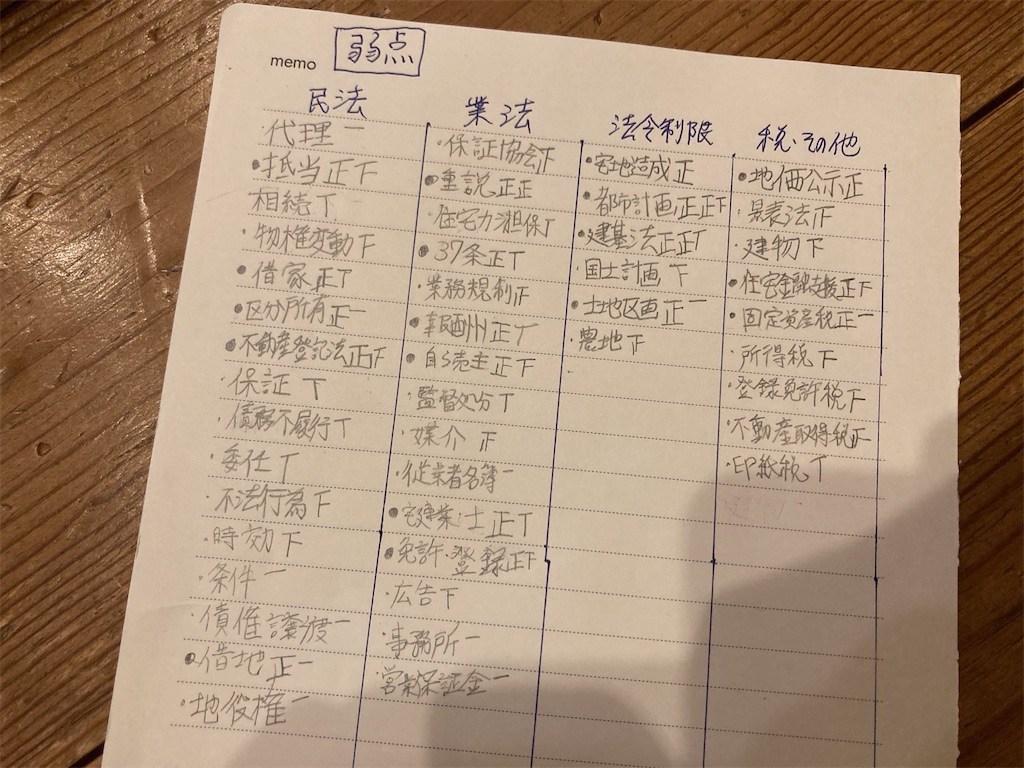 memo 弱点
民法
・代理 一
●抵当 正下
相続 T
・物権変動 下
●借家 正T
●区分所有 正一
●不動産登記法 正下
・保証 T
・債務不履行 T
・委任 T
・不法行為 下
・時効 下
・条件 一
・債権譲渡 一
●借地 正一
・地役権 一
業法
・保証協会 下
●重説 正正
・住宅力 担保 T
●37条 正T
・業務規制 正
●報酬 正T
●自ら売主 正下
・監督処分 T
・媒介 正
・従業者名簿 一
●宅建業・士 正T
●免許・登録 正下
・広告 下
・事務所 一
・営業保証金 一
法令制限
●宅地造成 正
●都市計画 正正下
●建基法 正正T
・国土計画 下
●土地区画 正一
・農地 下
税・その他
●地価公示 正
・景表法 正
・建物 下
●住宅金融支援 正下
●固定資産税 正一
・所得税 下
・登録免許税 下
・不動産取得税 正
・印紙税 T